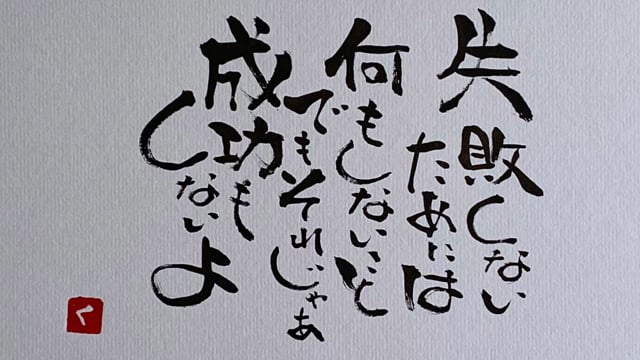 失敗しない
ためには
何もしないこと
でもそれじゃあ
成功も
しないよ
く